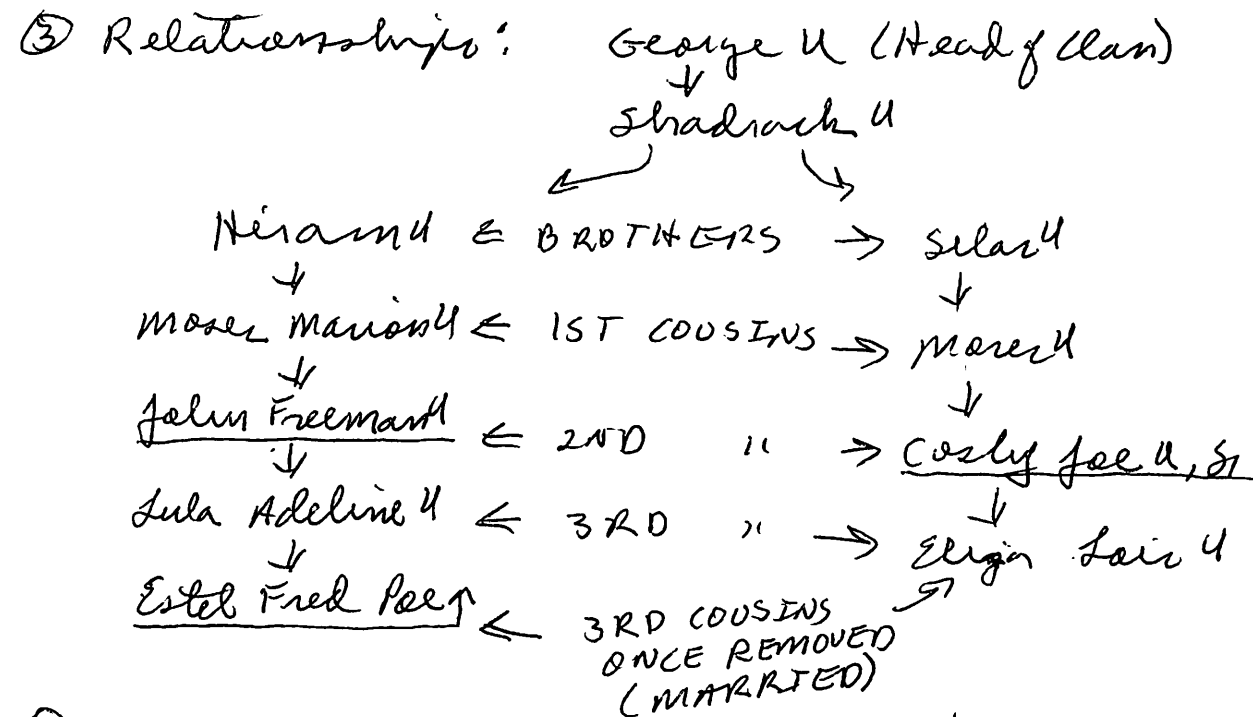 ③ Relationships: George U (Head of Clan)
↓
Shadrack U
↙ ↘
Hiram U ← BROTHERS → Silas U
↓ ↓
Moses Marion U ← 1ST COUSINS → Moses U
↓ ↓
John Freeman U ← 2ND " → Cosby Joe U, Sr
↓ ↓
Lula Adeline U ← 3RD " → Lois U
↓
Estel Fred Poe ↑ ← 3RD COUSINS ↗
ONCE REMOVED
(MARRIED)